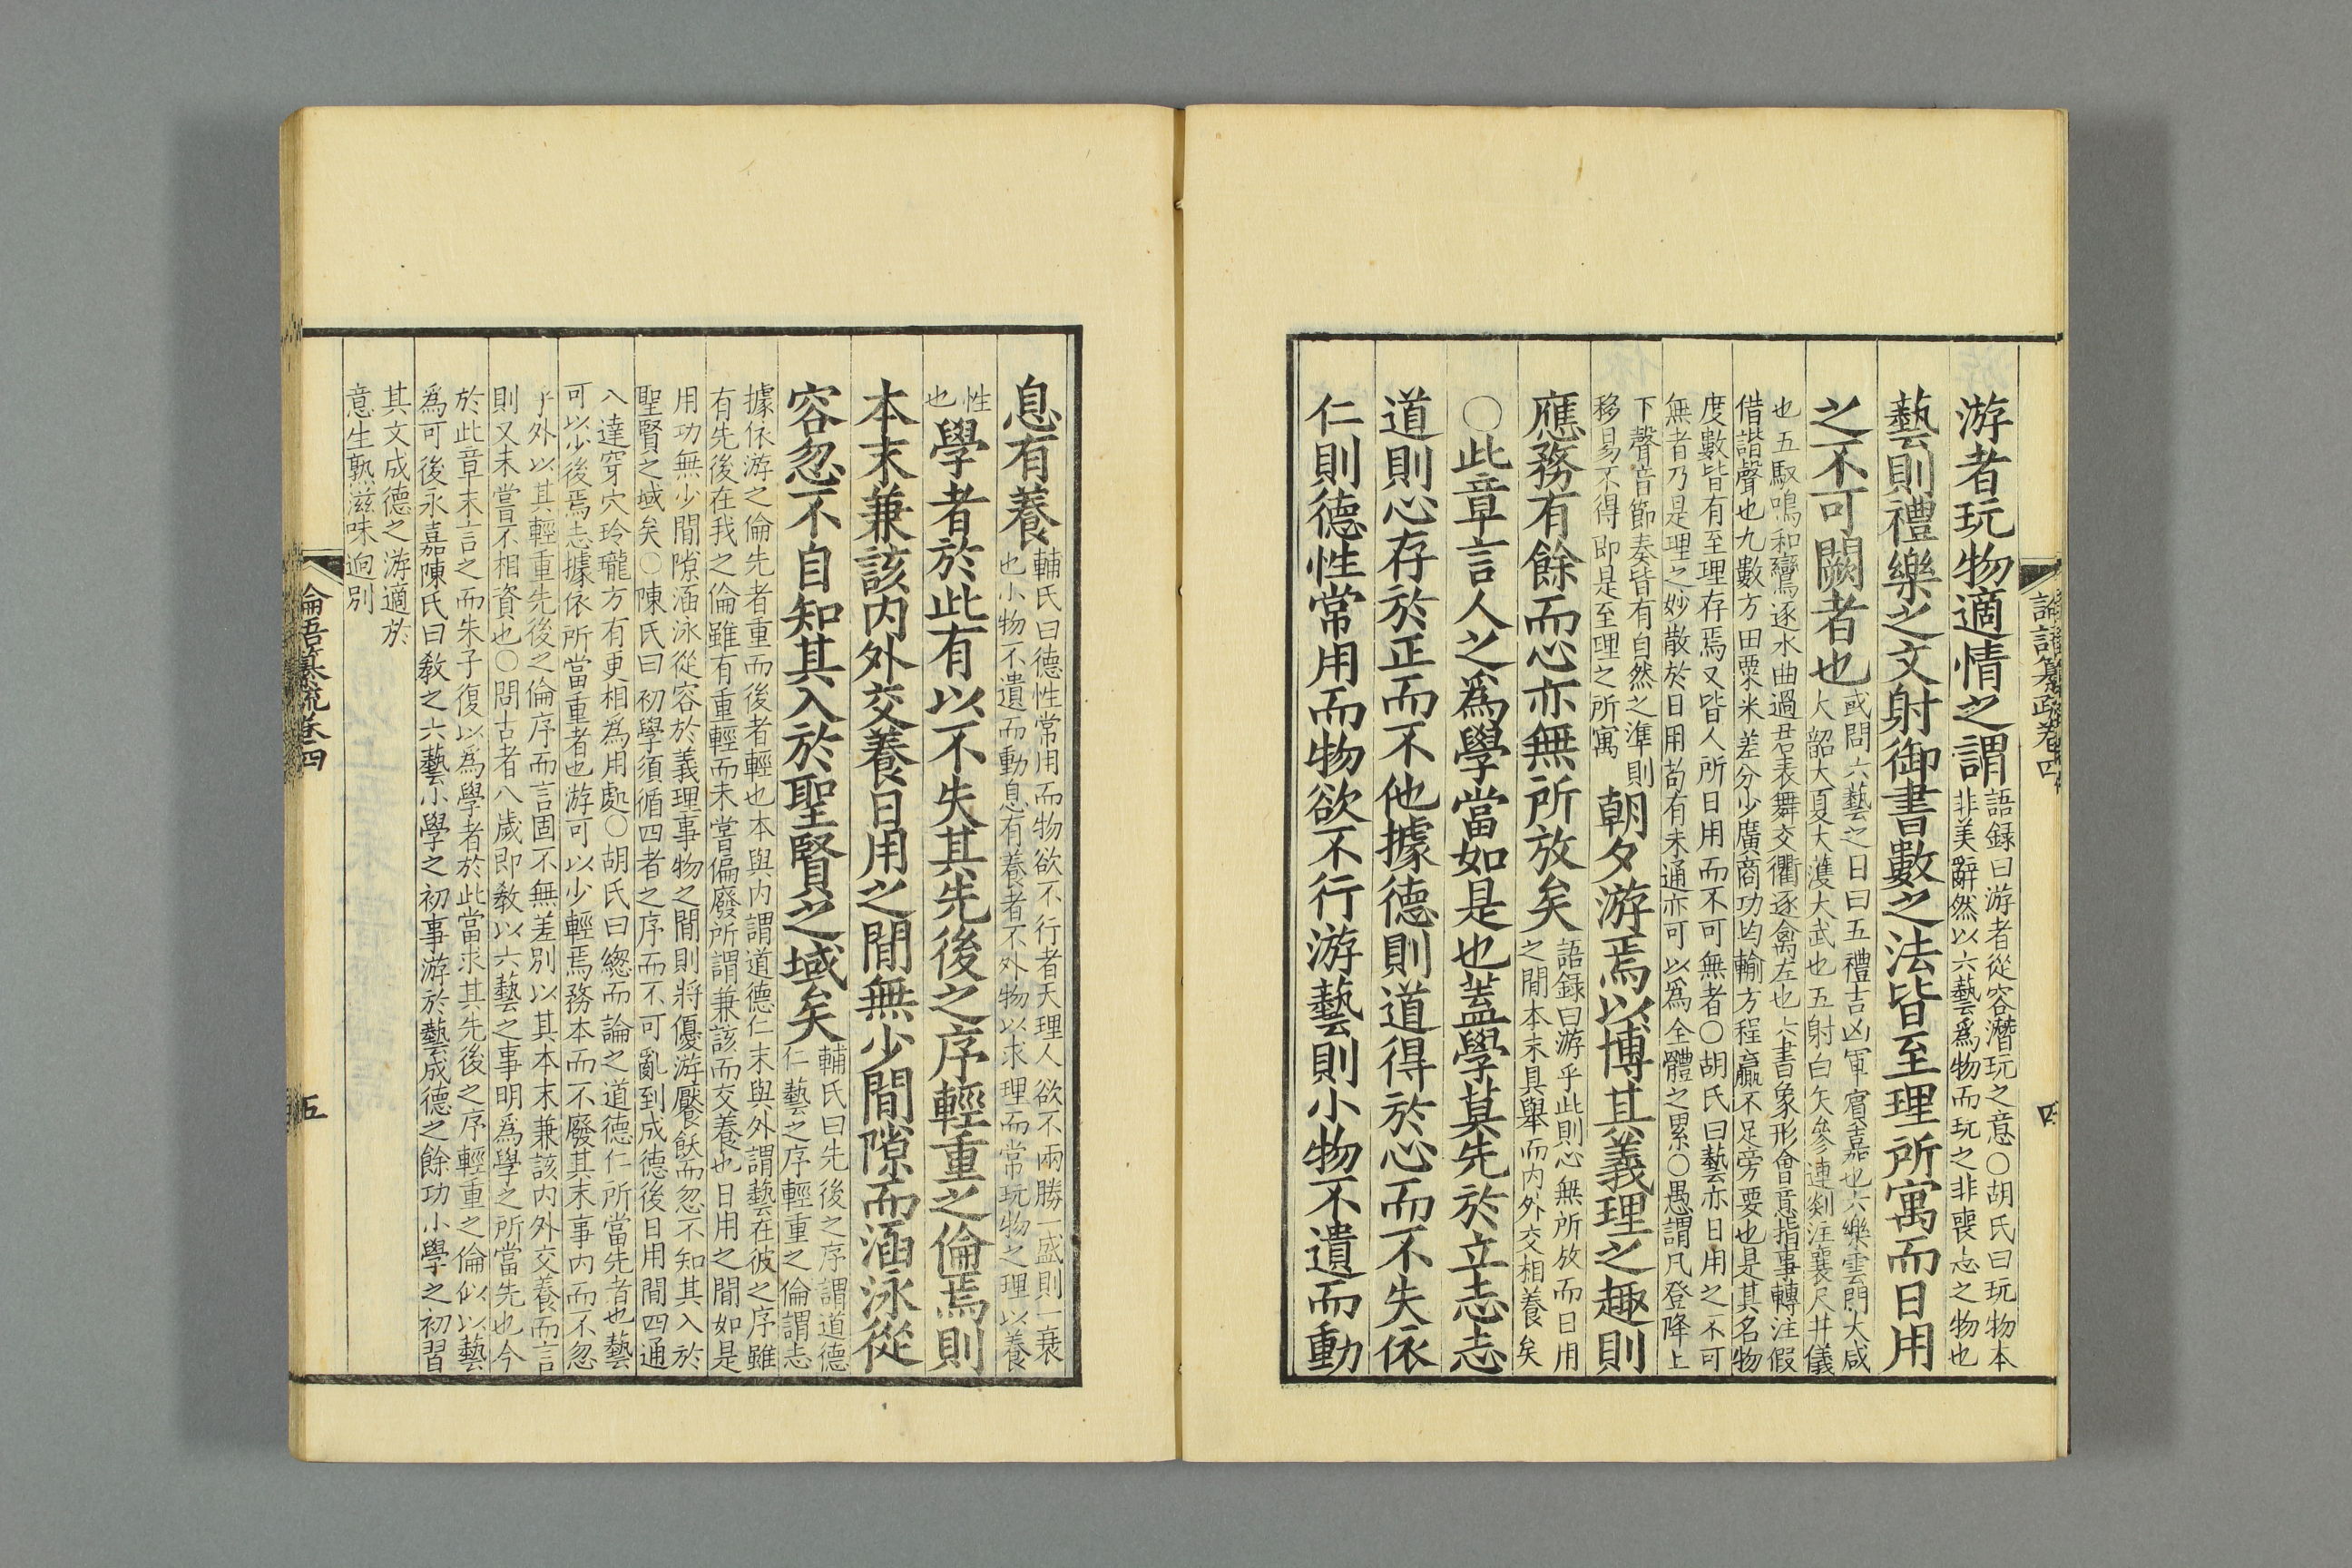 論語纂疏卷四
四
游者玩物適情之謂
語録曰游者從容潛玩之意○胡氏曰玩物本
非美辭然以六藝爲物而玩之非喪志之物也
藝則禮樂之文射御書數之法皆至理所寓而日用
之不可闕者也
或問六藝之目曰五禮吉凶軍賓嘉也六樂雲門大咸
大韶大夏大濩大武也五射白矢參連剡注襄尺井儀
也五馭鳴和鸞逐水曲過君表舞交衢逐禽左也六書象形會意指事轉注假
借諧聲也九數方田粟米差分少廣商功均輸方程贏不足旁要也是其名物
度數皆有至理存焉又皆人所日用而不可無者○胡氏曰藝亦日用之不可
無者乃是理之妙散於日用苟有未通亦可以爲全體之累○愚謂凡登降上
下聲音節奏皆有自然之準則
移易不得即是至理之所寓
朝夕游焉以博其義理之趣則
應務有餘而心亦無所放矣
語録曰游乎此則心無所放而日用
之閒本末具舉而内外交相養矣
○此章言人之爲學當如是也蓋學莫先於立志志
道則心存於正而不他據德則道得於心而不失依
仁則德性常用而物欲不行游藝則小物不遺而動
息有養
輔氏曰德性常用而物欲不行者天理人欲不兩勝一盛則一衰
也小物不遺而動息有養者不外物以求理而常玩物之理以養
性
也
學者於此有以不失其先後之序輕重之倫焉則
本末兼該内外交養日用之閒無少閒隙而涵泳從
容忽不自知其入於聖賢之域矣
輔氏曰先後之序謂道德
仁藝之序輕重之倫謂志
據依游之倫先者重而後者輕也本與内謂道德仁末與外謂藝在彼之序雖
有先後在我之倫雖有重輕而未嘗偏廢所謂兼該而交養也日用之閒如是
用功無少閒隙涵泳從容於義理事物之閒則將優游饜飫而忽不知其入於
聖賢之域矣○陳氏曰初學須循四者之序而不可亂到成德後日用閒四通
八達穿穴玲瓏方有更相爲用處○胡氏曰總而論之道德仁所當先者也藝
可以少後焉志據依所當重者也游可以少輕焉務本而不廢其末事内而不忽
乎外以其輕重先後之倫序而言固不無差別以其本末兼該内外交養而言
則又未嘗不相資也○問古者八歲即教以六藝之事明爲學之所當先也今
於此章末言之而朱子復以爲學者於此當求其先後之序輕重之倫似以藝
爲可後永嘉陳氏曰教之六藝小學之初事游於藝成德之餘功小學之初習
其文成德之游適於
意生熟滋味迥別
論語纂疏卷四
五